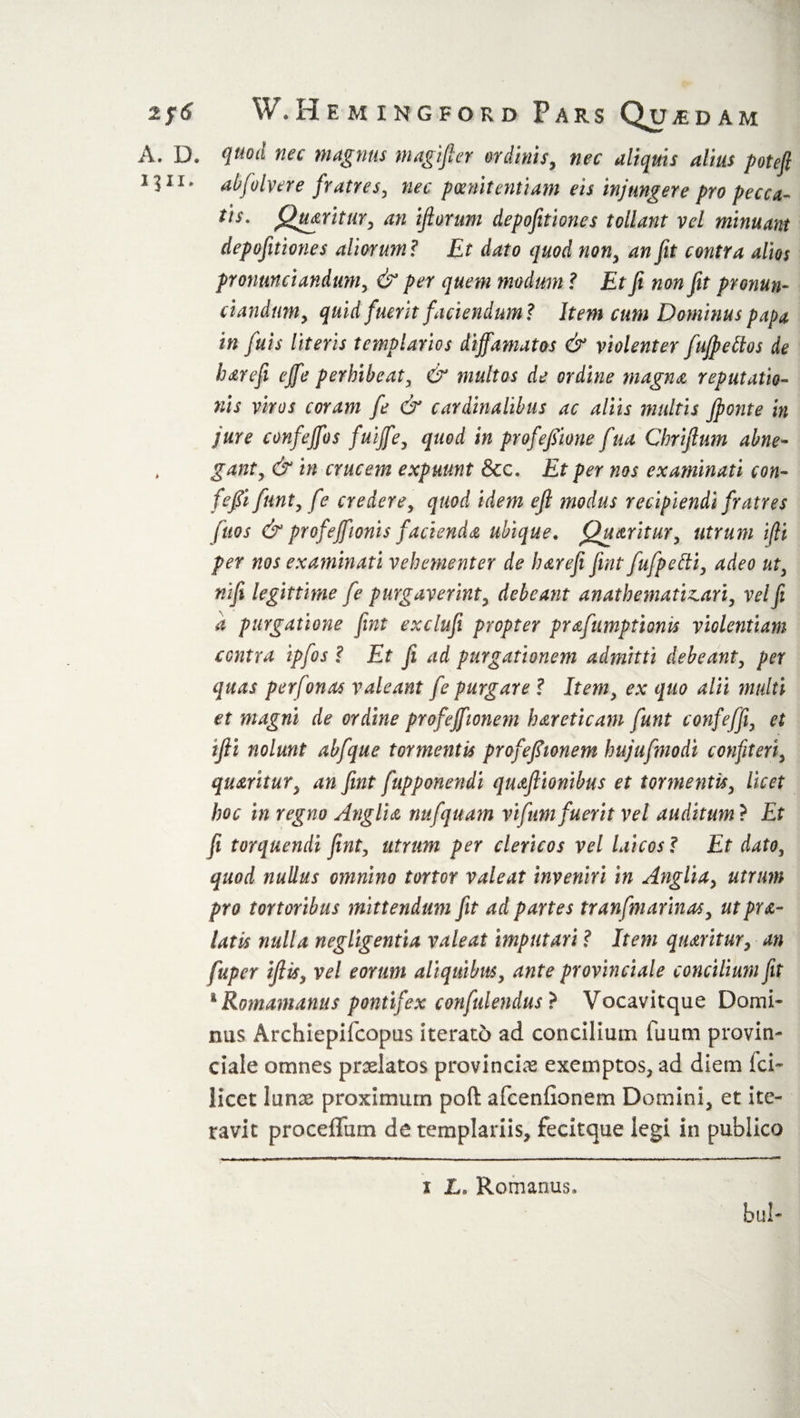 256 W. HEMINGFORD PARS QUÆDAM
A. D. quod nec magnus magiſter ordinis, nec aliquis alius poteſt
1311. abſolvere fratres, nec pœnitentiam eis injungere pro pecca-
tis. Quæritur, an iſtorum depoſitiones tollant vel minuant
depoſitiones aliorum? Et dato quod non, an ſit contra alios
pronunciandum, & per quem modum? Et ſi non ſit pronun-
ciandum, quid fuerit faciendum? Item cum Dominus papa
in ſuis literis templarios diffamatos & violenter ſuſpectos de
hæreſi eſſe perhibeat, & multos de ordine magnæ reputatio-
nis viros coram ſe & cardinalibus ac aliis multis ſponte in
jure confeſſos fuiſſe, quod in profeſſione ſua Chriſtum abne-
gant, & in crucem expuunt &c. Et per nos examinati con-
feſſi ſunt, ſe credere, quod idem eſt modus recipiendi fratres
ſuos & profeſſionis faciendæ ubique. Quæritur, utrum iſti
per nos examinati vehementer de hæreſi ſint ſuſpecti, adeo ut,
niſi legittime ſe purgaverint, debeant anathematizari, vel ſi
à purgatione ſint excluſi propter præſumptionis violentiam
contra ipſos? Et ſi ad purgationem admitti debeant, per
quas perſonas valeant ſe purgare? Item, ex quo alii multi
et magni de ordine profeſſionem hæreticam ſunt confeſſi, et
iſti nolunt abſque tormentis profeſſionem hujuſmodi confiteri,
quæritur, an ſint ſupponendi quæſtionibus et tormentis, licet
hoc in regno Angliæ nuſquam viſum fuerit vel auditum? Et
ſi torquendi ſint, utrum per clericos vel laicos? Et dato,
quod nullus omnino tortor valeat inveniri in Anglia, utrum
pro tortoribus mittendum ſit ad partes tranſmarinas, ut præ-
latis nulla negligentia valeat imputari? Item quæritur, an
ſuper iſtis, vel eorum aliquibus, ante provinciale concilium ſit
¹ Romamanus pontifex conſulendus? Vocavitque Domi-
nus Archiepiſcopus iteratò ad concilium ſuum provin-
ciale omnes prælatos provinciæ exemptos, ad diem ſci-
licet lunæ proximum poſt aſcenſionem Domini, et ite-
ravit proceſſum de templariis, fecitque legi in publico
1 L. Romanus.
bul-